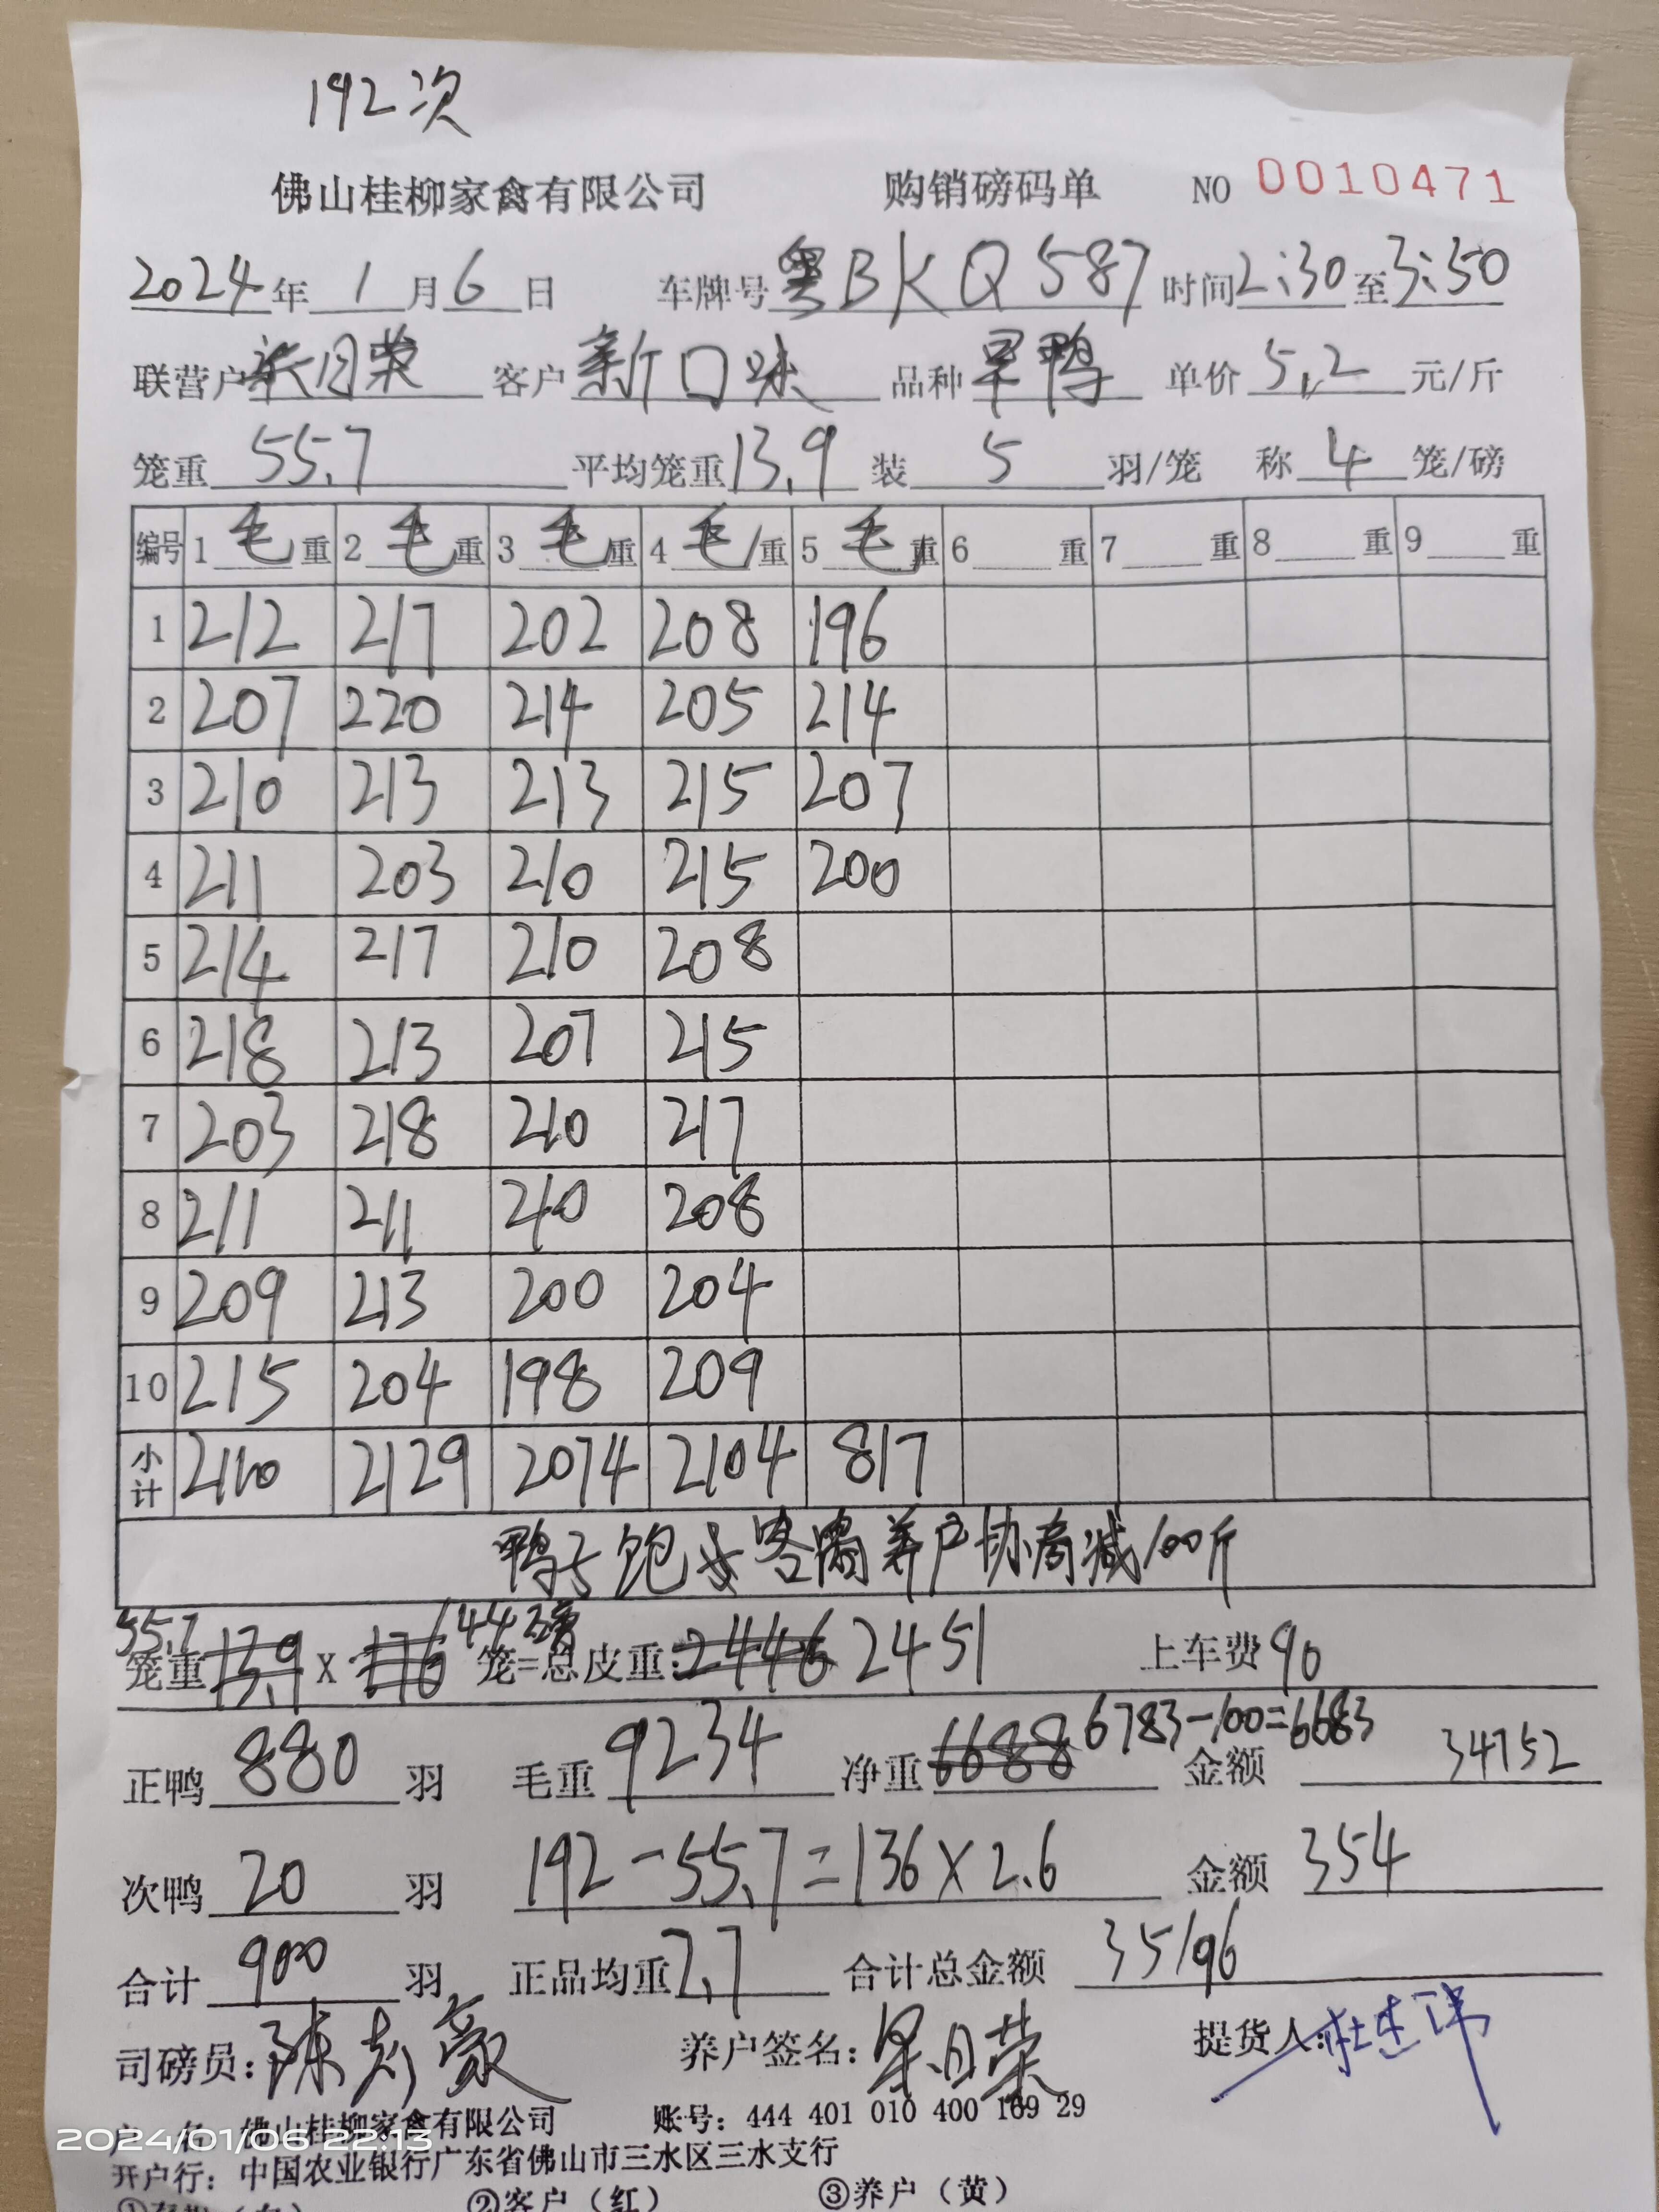 192次
佛山桂柳家禽有限公司 购销磅码单 NO 0010471
2024年1月6日 车牌号粤BKQ587 时间2:30至3:50
联营户 月荣 客户新口味 品种旱鸭 单价5.2元/斤
笼重55.7 平均笼重13.9 装5羽/笼 称4笼/磅
编号 1毛重 2毛重 3毛重 4毛重 5毛重 6重 7重 8重 9重
1 212 217 202 208 196
2 207 220 214 205 214
3 210 213 213 215 207
4 211 203 210 215 200
5 214 217 210 208
6 218 213 207 215
7 203 218 210 217
8 211 211 210 208
9 209 213 200 204
10 215 204 198 209
小计 2110 2129 2074 2104 817
鸭子饱 客 养户协商减100斤
55.7 44磅
笼重13.9X176笼=总皮重:2446 2451 上车费90
6783-100=6683
正鸭880羽 毛重9234 净重6688 金额34752
次鸭20羽 192-55.7=136×2.6 金额354
合计900羽 正品均重7.7 合计总金额35196
司磅员:陈志豪 养户签名: 荣 提货人:杜
户 名:佛山桂柳家禽有限公司 账号:444 401 010 400 169 29
2024/01/06 22:13
开户行:中国农业银行广东省佛山市三水区三水支行
②客户(红) ③养户(黄)